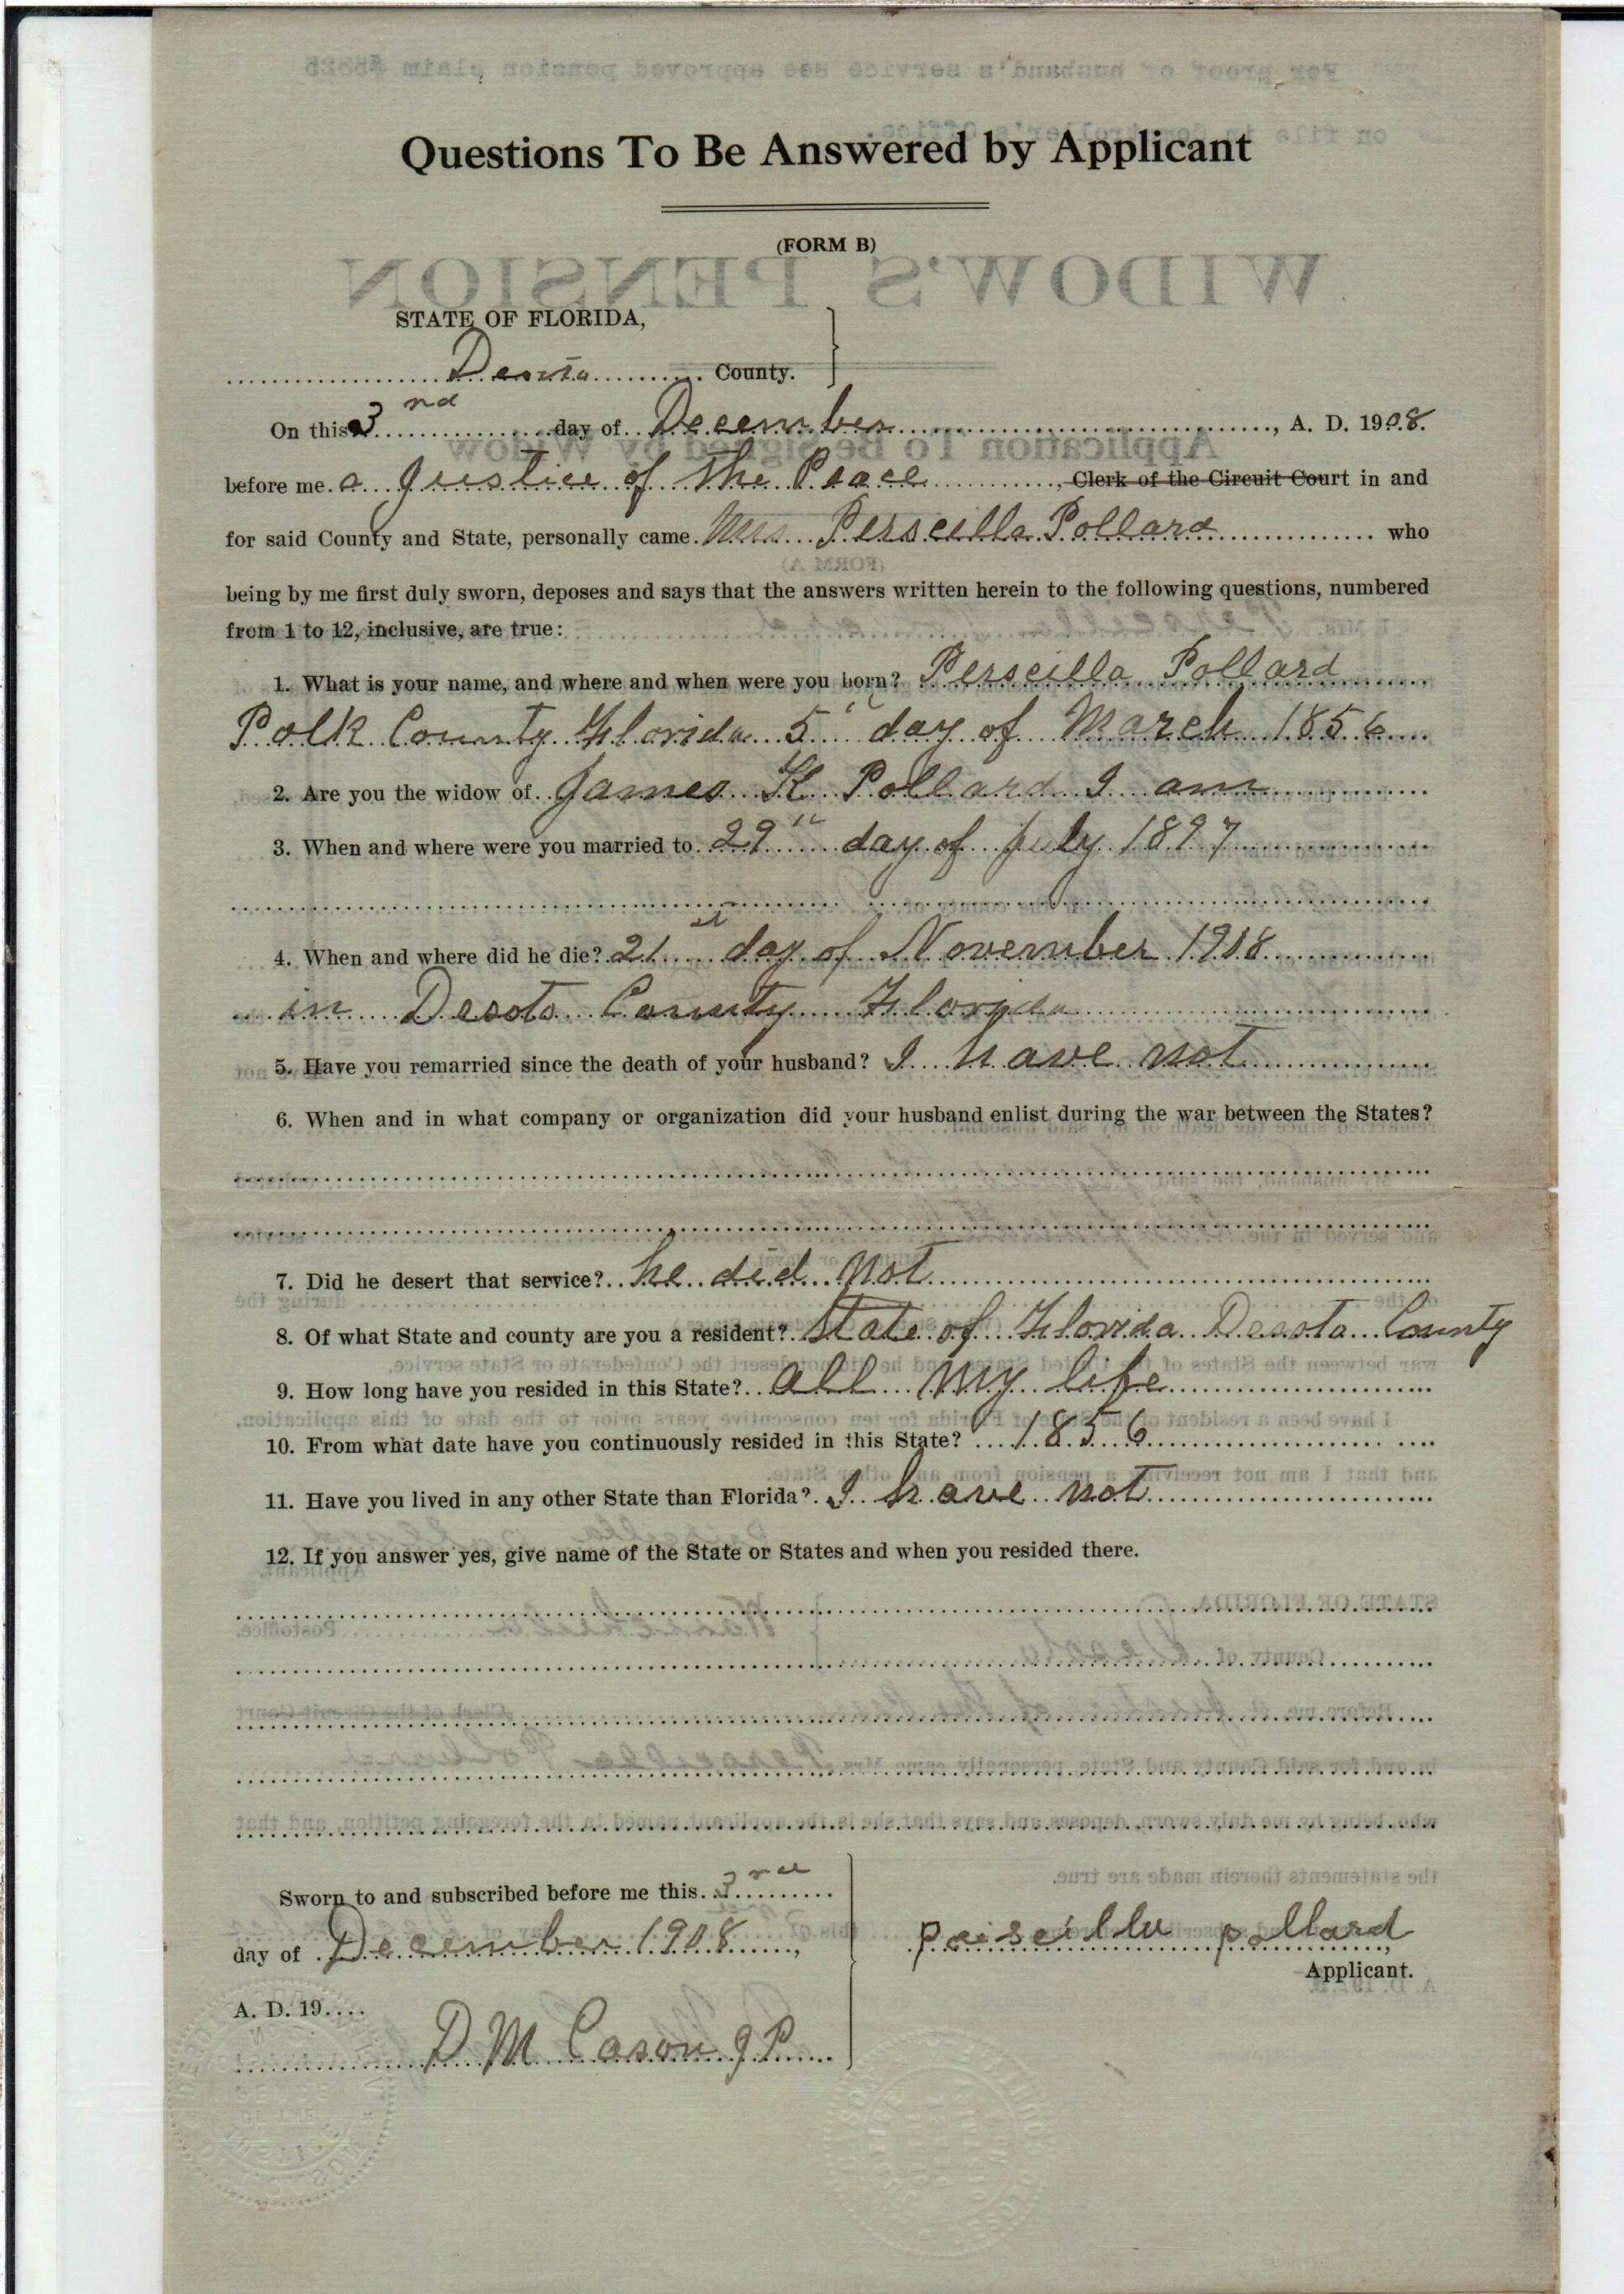 Questions To Be Answered by Applicant
(FORM B)
STATE OF FLORIDA,
Desoto County.
On this 3nd day of December, A. D. 1908.
before me a Justice of the Peace, Clerk of the Circuit Court in and
for said County and State, personally came Mrs. Perscilla Pollard who
being by me first duly sworn, deposes and says that the answers written herein to the following questions, numbered
from 1 to 12, inclusive, are true:
1. What is your name, and where and when were you born? Perscilla Pollard
Polk County Florida 5th day of March 1856
2. Are you the widow of James K Pollard I am
3. When and where were you married to 29th day of July 1897
4. When and where did he die? 21st day of November 1908
in Desoto County Florida
5. Have you remarried since the death of your husband? I have not
6. When and in what company or organization did your husband enlist during the war between the States?
7. Did he desert that service? he did not
8. Of what State and county are you a resident? State of Florida Desoto County
9. How long have you resided in this State? all my life
10. From what date have you continuously resided in this State? 1856
11. Have you lived in any other State than Florida? I have not
12. If you answer yes, give name of the State or States and when you resided there.
Sworn to and subscribed before me this 3rd
day of December 1908,
A. D. 19....
D M Cason J P
priscilla pollard
Applicant.